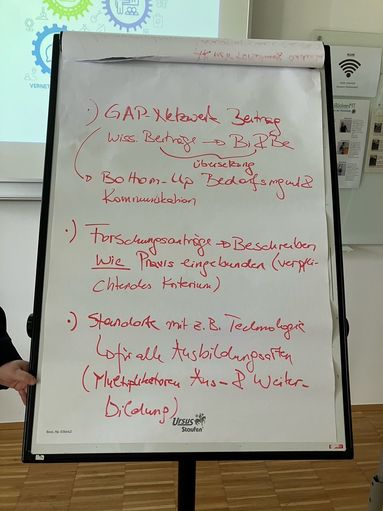 VERNET
•) GAP-Netzwerk Beitrag
Wiss. Beiträge → Bi & Be
übersetzung
→ Bottom-Up Bedarfsmgmt &
Kommunikation
•) Forschungsanträge → Beschreiben
Wie Praxis eingebunden (verpfli-
chtendes Kriterium)
•) Standorte mit z.B. Technologie
↳ für alle Ausbildungsarten
(Multiplikatoren Aus- & Weiter-
bildung)
Ursus
Staufen